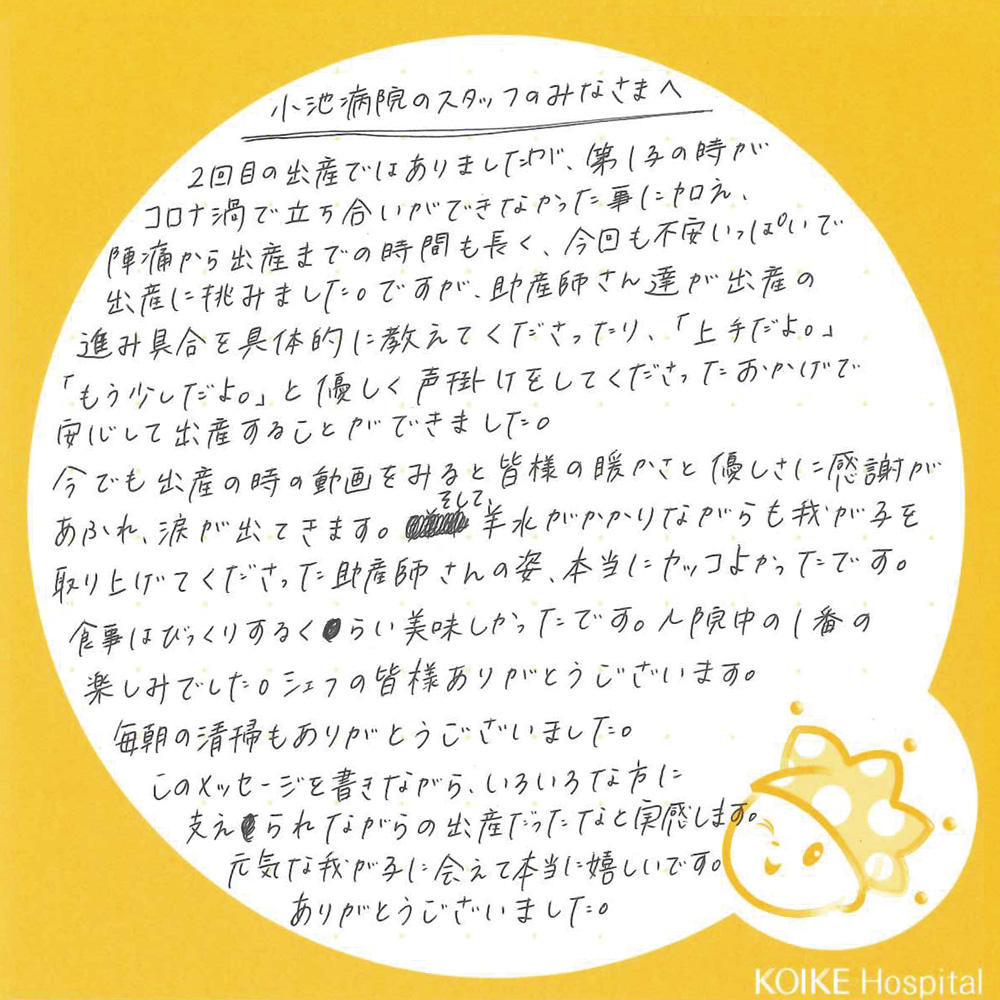 小池病院のスタッフのみなさまへ
2回目の出産ではありましたが、第1子の時が
コロナ渦で立ち合いができなかった事に加え、
陣痛から出産までの時間も長く、今回も不安いっぱいで
出産に挑みました。ですが、助産師さん達が出産の
進み具合を具体的に教えてくださったり、「上手だよ。」
「もう少しだよ。」と優しく声掛けをしてくださったおかげで
安心して出産することができました。
今でも出産の時の動画をみると皆様の暖かさと優しさに感謝が
あふれ、涙が出てきます。そして、羊水がかかりながらも我が子を
取り上げてくださった助産師さんの姿、本当にカッコよかったです。
食事はびっくりするくらい美味しかったです。入院中の1番の
楽しみでした。シェフの皆様ありがとうございます。
毎朝の清掃もありがとうございました。
このメッセージを書きながら、いろいろな方に
支えられながらの出産だったなと実感します。
元気な我が子に会えて本当に嬉しいです。
ありがとうございました。
KOIKE Hospital